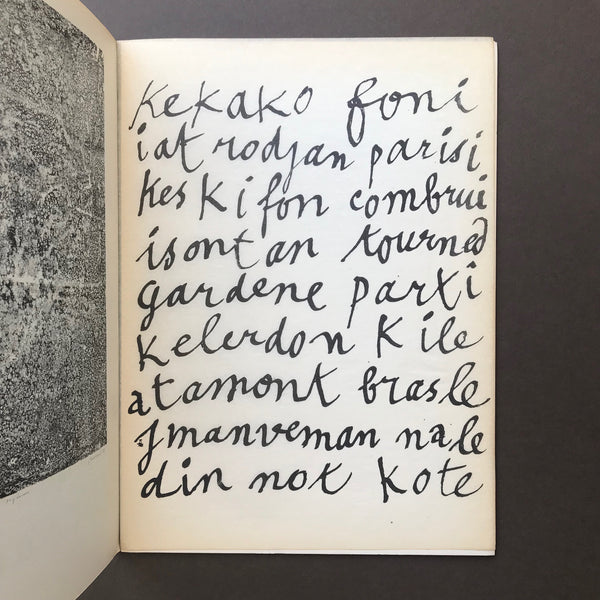 kekako foni
iat rodjan parisi
keski fon combrui
isont an tourned
gardene parti
kelerdon kile
atamont brasle
jmanveman nale
din not kote